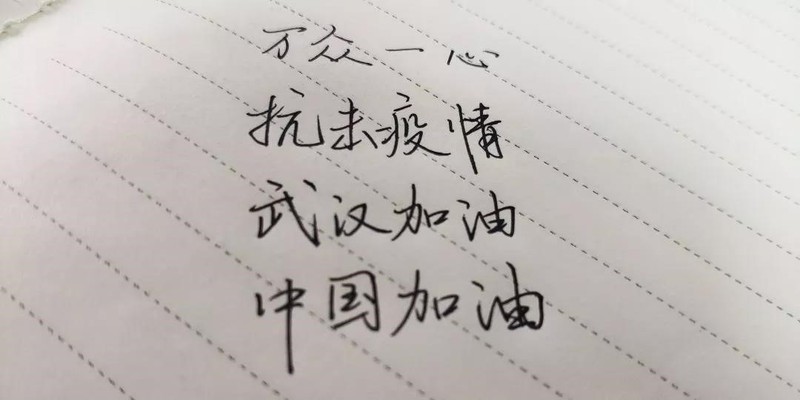 万众一心
抗击疫情
武汉加油
中国加油